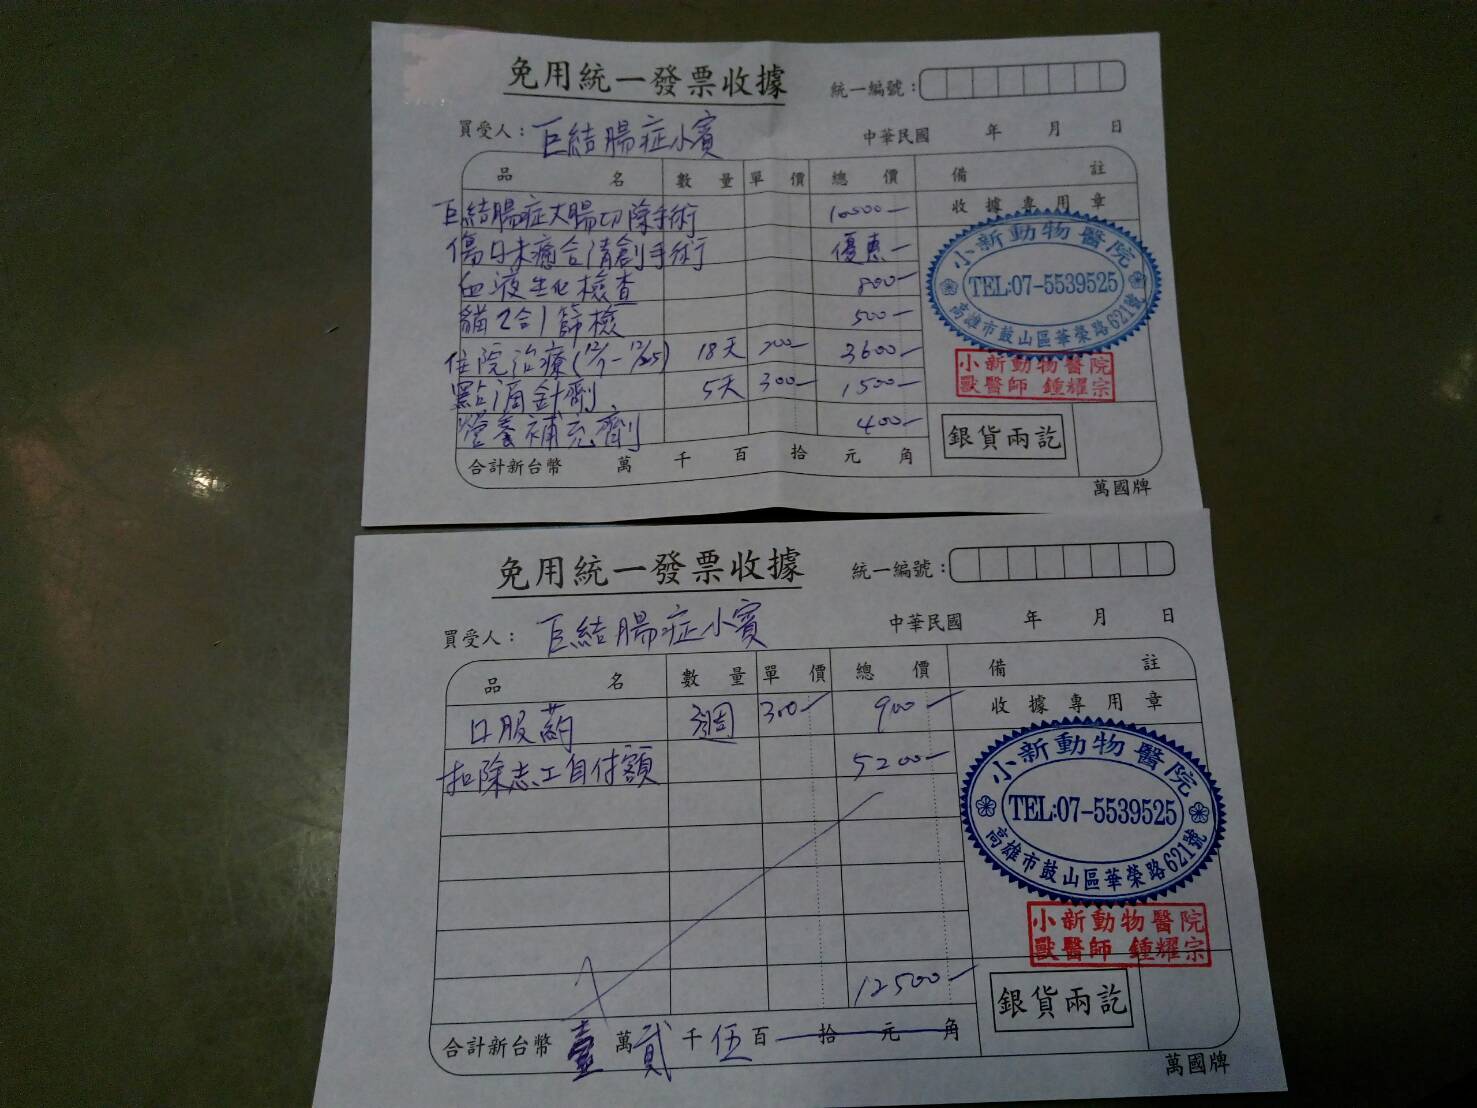 免用統一發票收據
統一編號：
買受人：巨結腸症小賓
中華民國 年 月 日
品名 數量 單價 總價 備註
巨結腸症大腸切除手術 10500-
收據專用章
傷口未癒合清創手術 優惠-
血液生化檢查 800-
貓2合1篩檢 500-
住院治療(12/7-12/25) 18天 200- 3600-
點滴針劑 5天 300- 1500-
營養補充劑 400-
小新動物醫院
TEL:07-5539525
高雄市鼓山區華榮路621號
小新動物醫院
獸醫師 鍾耀宗
銀貨兩訖
合計新台幣 萬 千 百 拾 元 角
萬國牌
免用統一發票收據
統一編號：
買受人：巨結腸症小賓
中華民國 年 月 日
品名 數量 單價 總價 備註
口服藥 3週 300- 900-
收據專用章
扣除志工自付額 5200-
12500-
小新動物醫院
TEL:07-5539525
高雄市鼓山區華榮路621號
小新動物醫院
獸醫師 鍾耀宗
銀貨兩訖
合計新台幣 壹萬貳千伍百拾元角
萬國牌